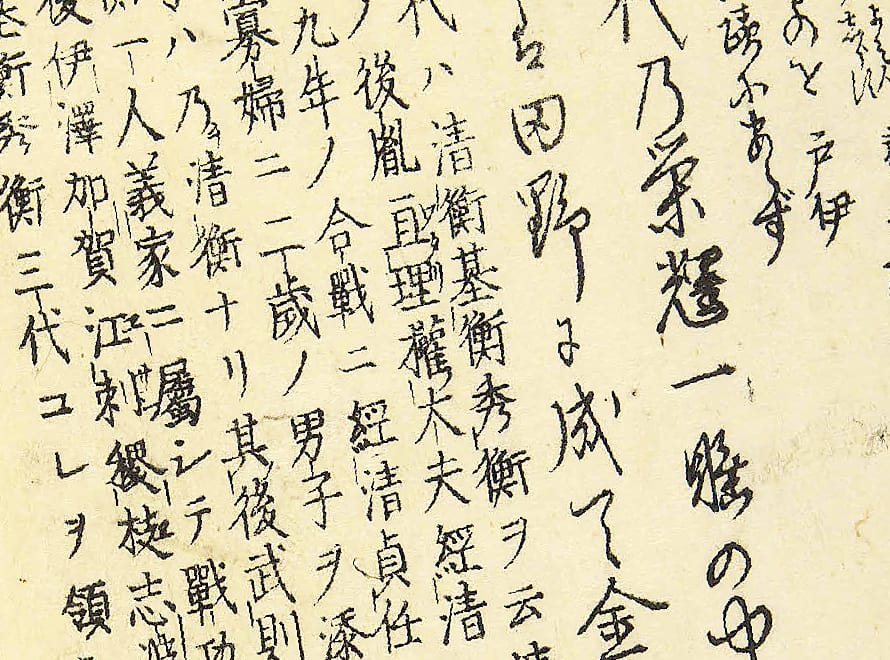 戸伊
代乃栄耀一睡の中
田野に成て金
代ハ清衡基衡秀衡ヲ云
ノ後胤亘理權大夫經清
九年ノ合戰ニ經清貞任
寡婦ニ二歳ノ男子ヲ添
ハ乃清衡ナリ其後武則
一人義家ニ屬シテ戰功
後伊澤加賀江刺稷枝志波
基衡秀衡三代コレヲ領